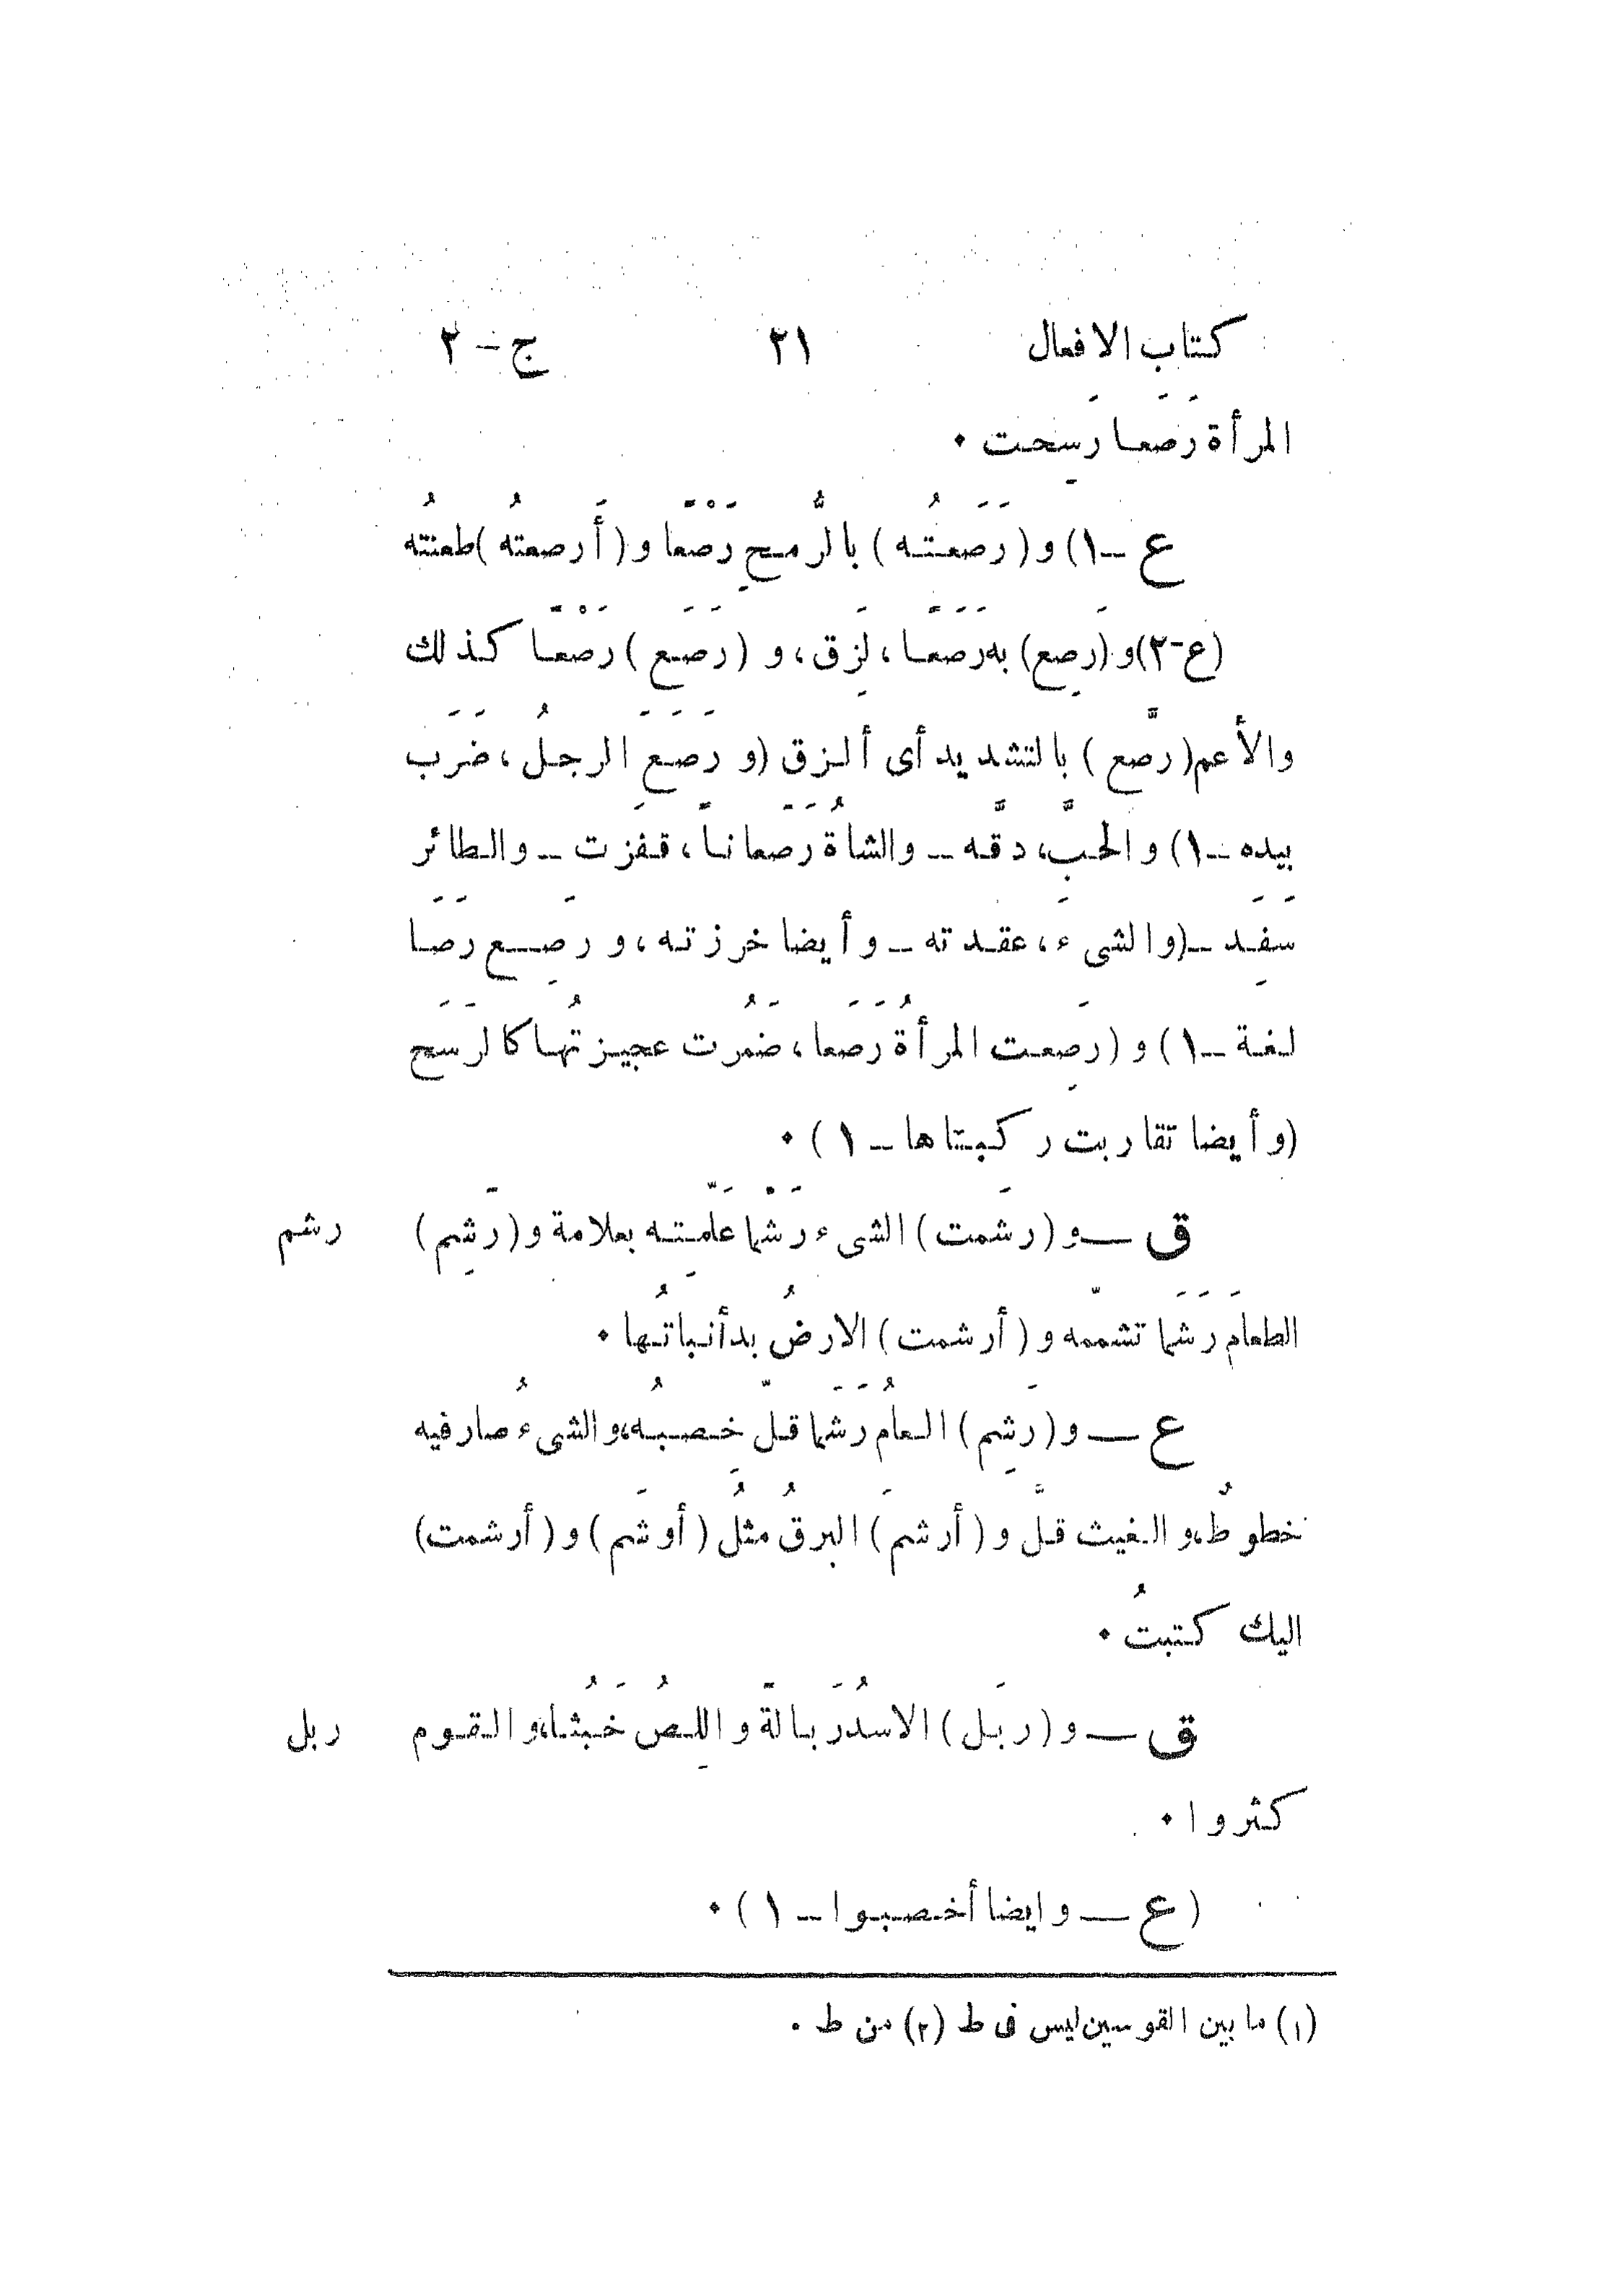 كتاب الافعال ٢١ ج - ٢
المرأة رَصَعا رَسِحت .
ع ــ ١) و (رَصَعتُه) بالرُّمحِ رَصْعًا و (أَرصعتُه) طعنتُه
(ع-٢) و (رَصِع) به رَصَعًا، لَزِق، و (رَصَع) رَصْعًا كذلك
والأعم (رصَّع) بالتشديد أى ألزق (و رَصَعَ الرجلُ، ضَرَب
بيده ــ ١) و الحبَّ، دقَّه ــ والشاةُ رَصَعاناً، قفَزت ــ والطائر
سَفِدَ ــ (والشىء، عقَدته ــ وأيضا خرَزته، و رصِع رَصَا
لغة ــ ١) و (رَصِعت المرأةُ رَصَعا، ضَمُرت عجيزتُها كالرَسَح
(وأيضا تقاربت ركبتاها ــ ١) .
ق ــ و (رشَمت) الشىء رَشْما عَلَّمِته بعلامة و (رَشِم) رشم
الطعامَ رَشَما تشمّمه و (أرشمت) الارضُ بدأ نباتُها .
ع ــ و (رَشِم) العامُ رَشَما قلّ خِصبُه، والشىءُ صار فيه
خطوطٌ، و الغيث قلَّ و (أرشَم) البرقُ مثلُ (أوشَم) و (أرشمت)
اليك كتبتُ .
ق ــ و (ربَل) الاسدُ رَبالةً و اللِصُ خَبُثا، و القوم ربل
كثروا .
(ع ــ وايضا أخصبوا ــ ١) .
(١) ما بين القوسين ليس فى ط (٢) من ط .